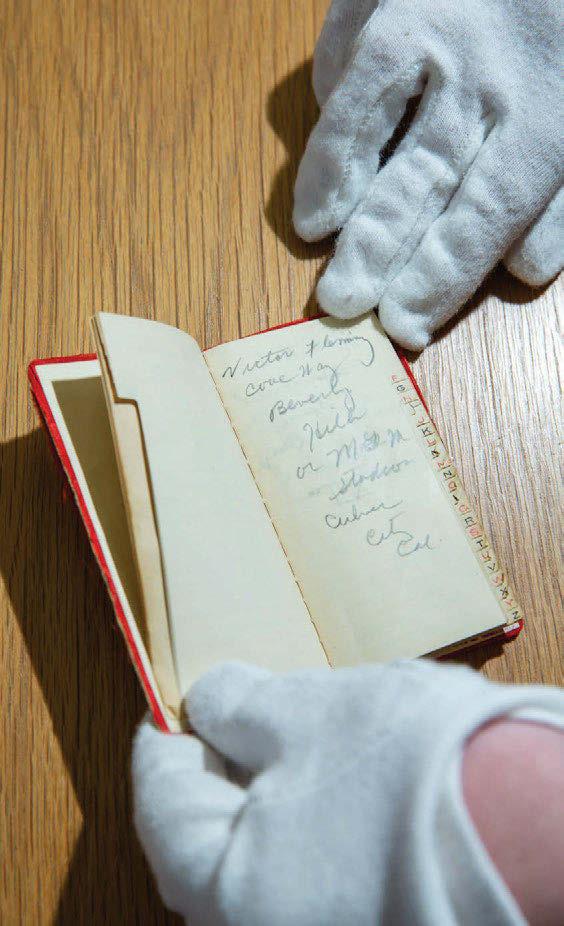 Victor Fleming
Cove Way
Beverly
Hills
or M.G.M
Studios
Culver
City
Cal.